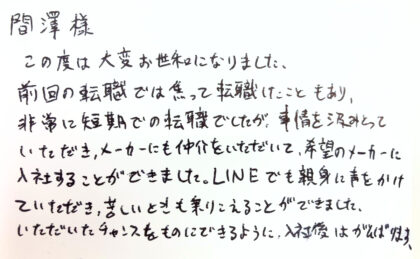 間澤様
この度は大変お世和になりました、
前回の転職では焦って転職したこともあり、
非常に短期での転職でしたが、事情を汲みとって
いただき、メーカーにも仲介をいただいて、希望のメーカーに
入社することができました。LINEでも親身に声をかけ
ていただき、苦しいときも乗りこえることができました、
いただいたチャンスをものにできるように、入社後はがんばります。